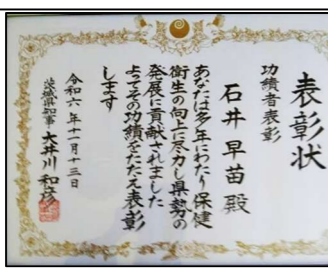 表彰状
功績者表彰
石井早苗殿
あなたは多年にわたり保健
衛生の向上に尽力し県勢の
発展に貢献されました
よってその功績をたたえ表彰
します
令和六年十一月十三日
茨城県知事 大井川和彦